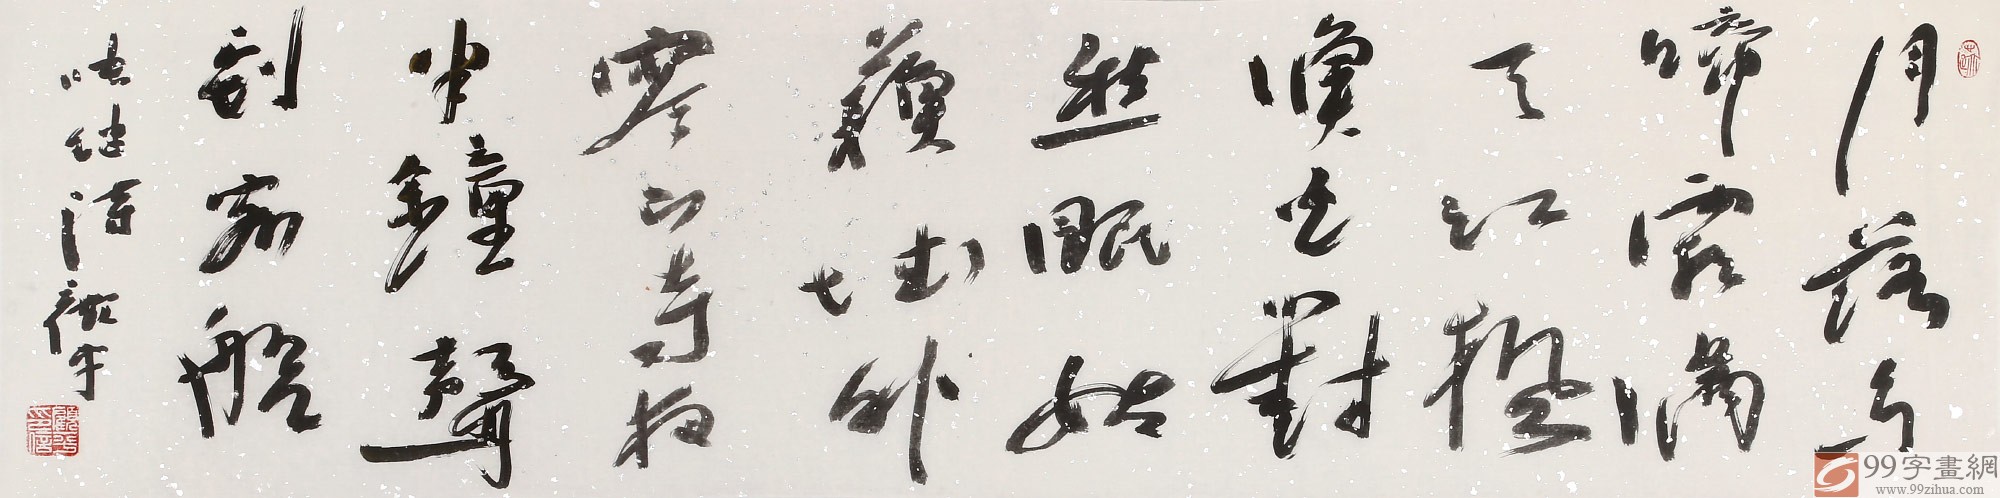 月落烏
啼霜滿
天江楓
漁火對
愁眠姑
蘇城外
寒山寺夜
半鐘聲
到客船
張继诗顧平
顧平印信
99字畫網
www.99zihua.com